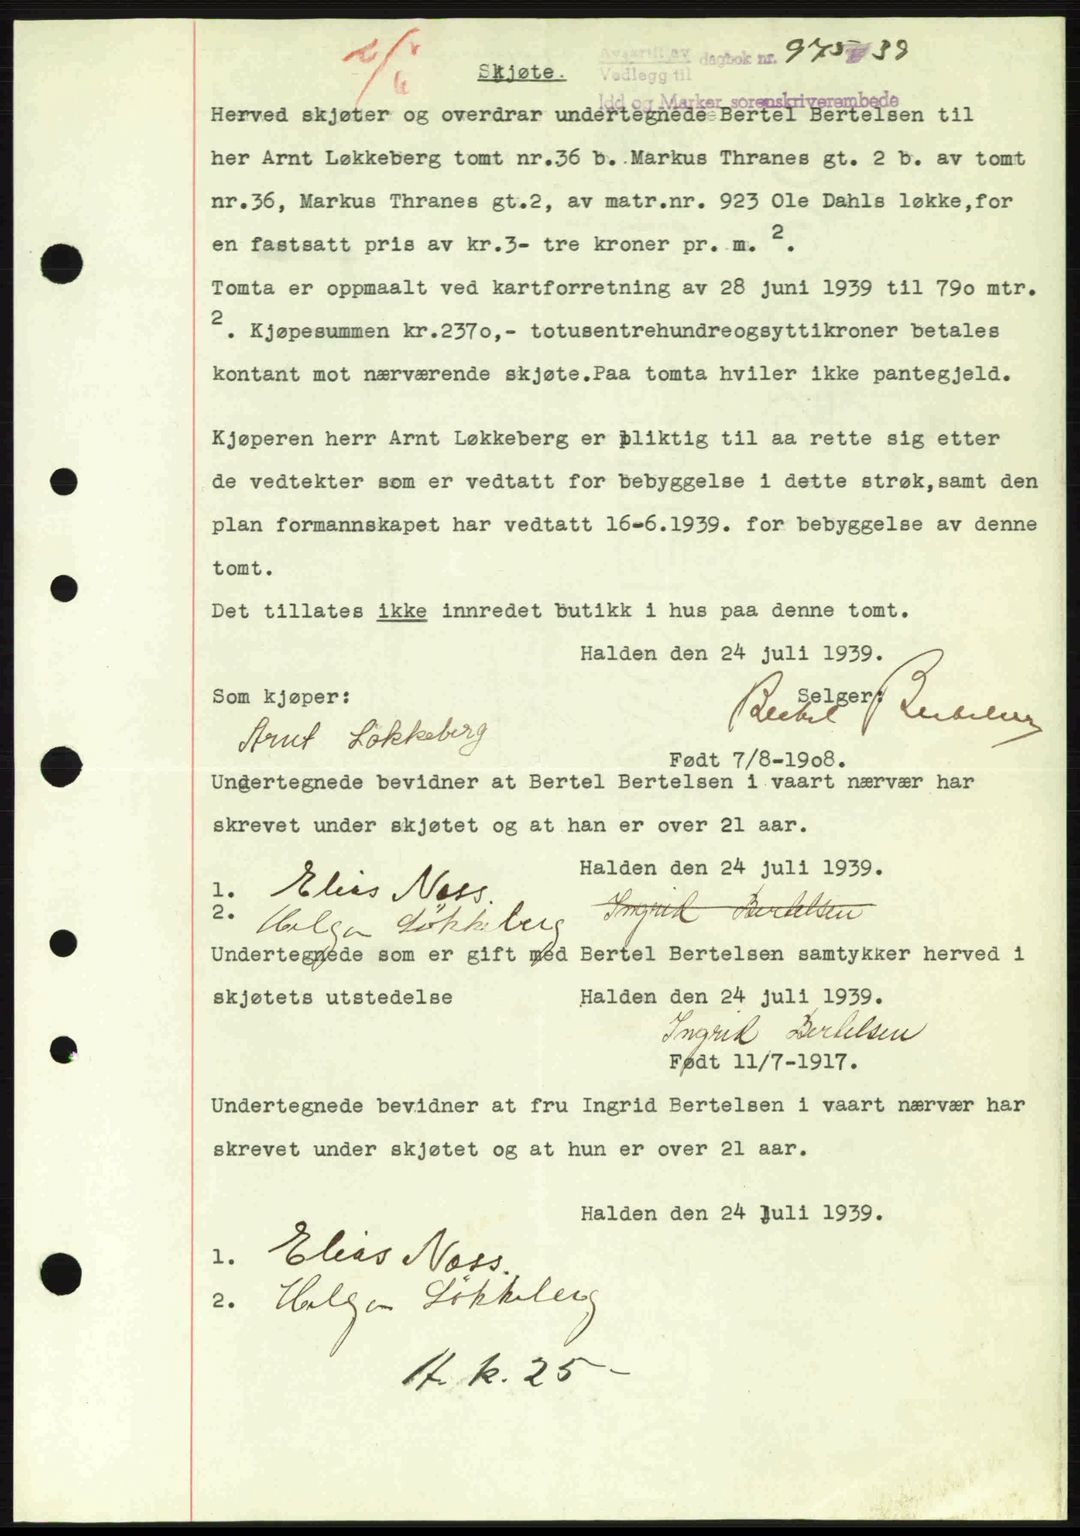 Avskrift av dagbok nr. 975 39
Vedlegg til
Idd og Marker sorenskriverembede
Skjøte.
Herved skjøter og overdrar undertegnede Bertel Bertelsen til
her Arnt Løkkeberg tomt nr.36 b. Markus Thranes gt. 2 b. av tomt
nr.36, Markus Thranes gt.2, av matr.nr. 923 Ole Dahls løkke,for
en fastsatt pris av kr.3- tre kroner pr. m. 2.
Tomta er oppmaalt ved kartforretning av 28 juni 1939 til 79o mtr.
2. Kjøpesummen kr.237o,- totusentrehundreogsyttikroner betales
kontant mot nærværende skjøte.Paa tomta hviler ikke pantegjeld.
Kjøperen herr Arnt Løkkeberg er pliktig til aa rette sig etter
de vedtekter som er vedtatt for bebyggelse i dette strøk,samt den
plan formannskapet har vedtatt 16-6.1939. for bebyggelse av denne
tomt.
Det tillates ikke innredet butikk i hus paa denne tomt.
Halden den 24 juli 1939.
Som kjøper: Selger:
Arnt Løkkeberg Bertel Bertelsen
Født 7/8-19o8.
Undertegnede bevidner at Bertel Bertelsen i vaart nærvær har
skrevet under skjøtet og at han er over 21 aar.
Halden den 24 juli 1939.
1. Elias Næss.
2. Helga Løkkeberg Ingrid Bertelsen
Undertegnede som er gift med Bertel Bertelsen samtykker herved i
skjøtets utstedelse Halden den 24 juli 1939.
Ingrid Bertelsen
Født 11/7-1917.
Undertegnede bevidner at fru Ingrid Bertelsen i vaart nærvær har
skrevet under skjøtet og at hun er over 21 aar.
Halden den 24 juli 1939.
1. Elias Næss.
2. Helga Løkkeberg
H. k. 25-